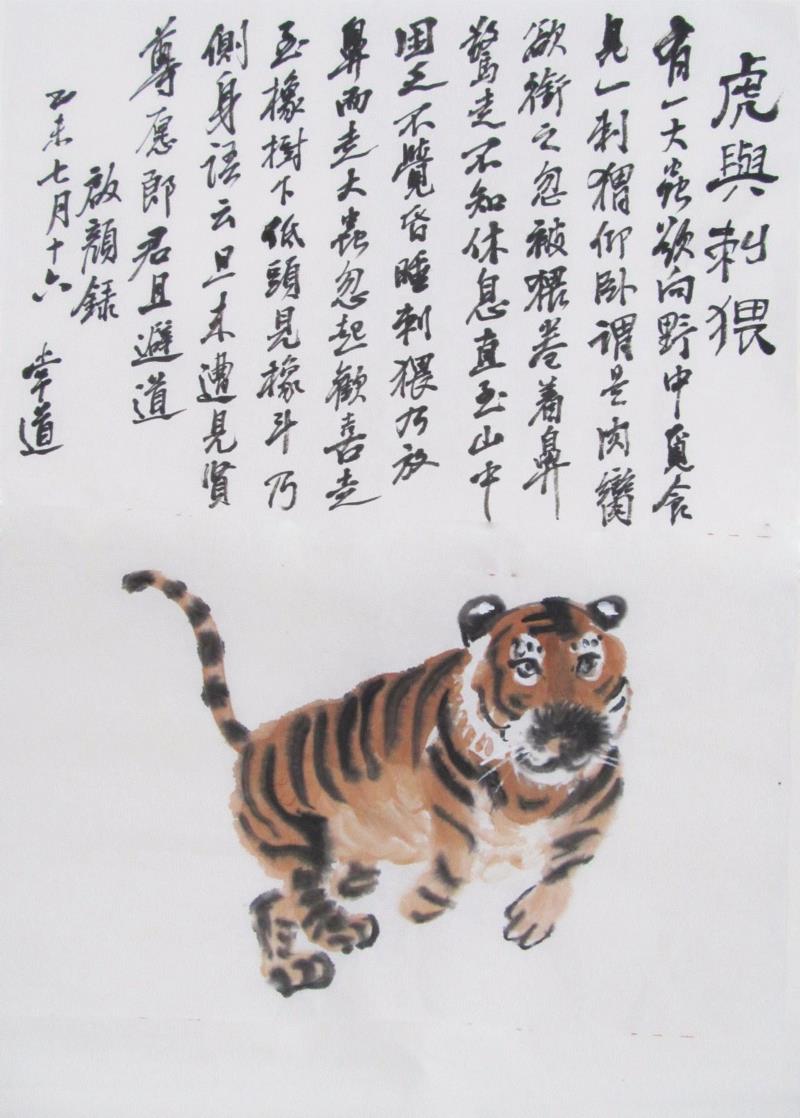 虎與刺猥
有一大蟲欲向野中覓食
見一刺猬仰卧謂是肉臠
欲銜之忽被猥卷着鼻
驚走不知休息直至山中
困乏不覺昏睡刺猥乃放
鼻而走大蟲忽起歡喜走
至橡樹下低頭見橡斗乃
側身語云旦來遭見賢
尊愿郎君且避道
啟顏錄
乙未七月十六
道